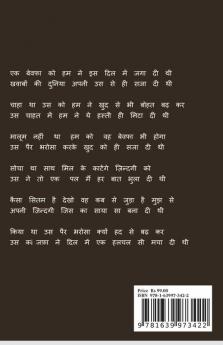 एक बेवफ़ा को हम ने इस दिल में जगा दी थी
ख़वाबों की दुनिया अपनी उस से ही सजा दी थी
चाहा था उस को हम ने ख़ुद से भी बोहत बढ़ कर
उस चाहत में हम ने ये हस्ती ही मिटा दी थी
मालूम नहीं था हम को वह बेवफ़ा भी होगा
उस पैर भरोसा करके ख़ुद को ही सजा दी थी
सोचा था साथ मिल के काटेंगे ज़िन्दगी को
उस ने तो एक पल मैं हर बात भुला दी थी
कैसा सितम है देखो वह कब से जुड़ा है मुझ से
अपनी ज़िन्दगी जिस का साया सा बना दी थी
किया था उस पैर भरोसा क्यों हद से बढ़ कर
उस की जफ़ा ने दिल में एक हलचल सी मचा दी थी
Price : Rs 99.00
ISBN 978-1-63997-342-2
9 781639 973422